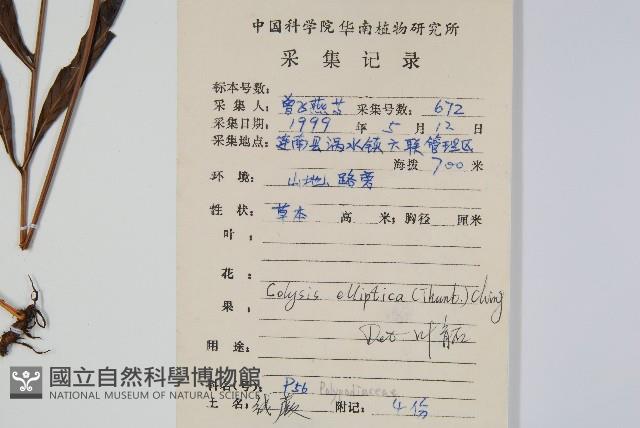 中国科学院华南植物研究所
采集记录
标本号数:
采集人: 曾飞燕等 采集号数: 672
采集日期: 1999 年 5 月 12 日
采集地点: 连南县涡水镇六联管理区
海拨 700 米
环境: 山地, 路旁
性状: 草本 高 米; 胸径 厘米
叶:
花:
Colysis elliptica (Thunb.) Ching
果:
Det
用途:
科名(号): P56 Polypodiaceae
土名: 线蕨 附记: 4份
國立自然科學博物館
NATIONAL MUSEUM OF NATURAL SCIENCE